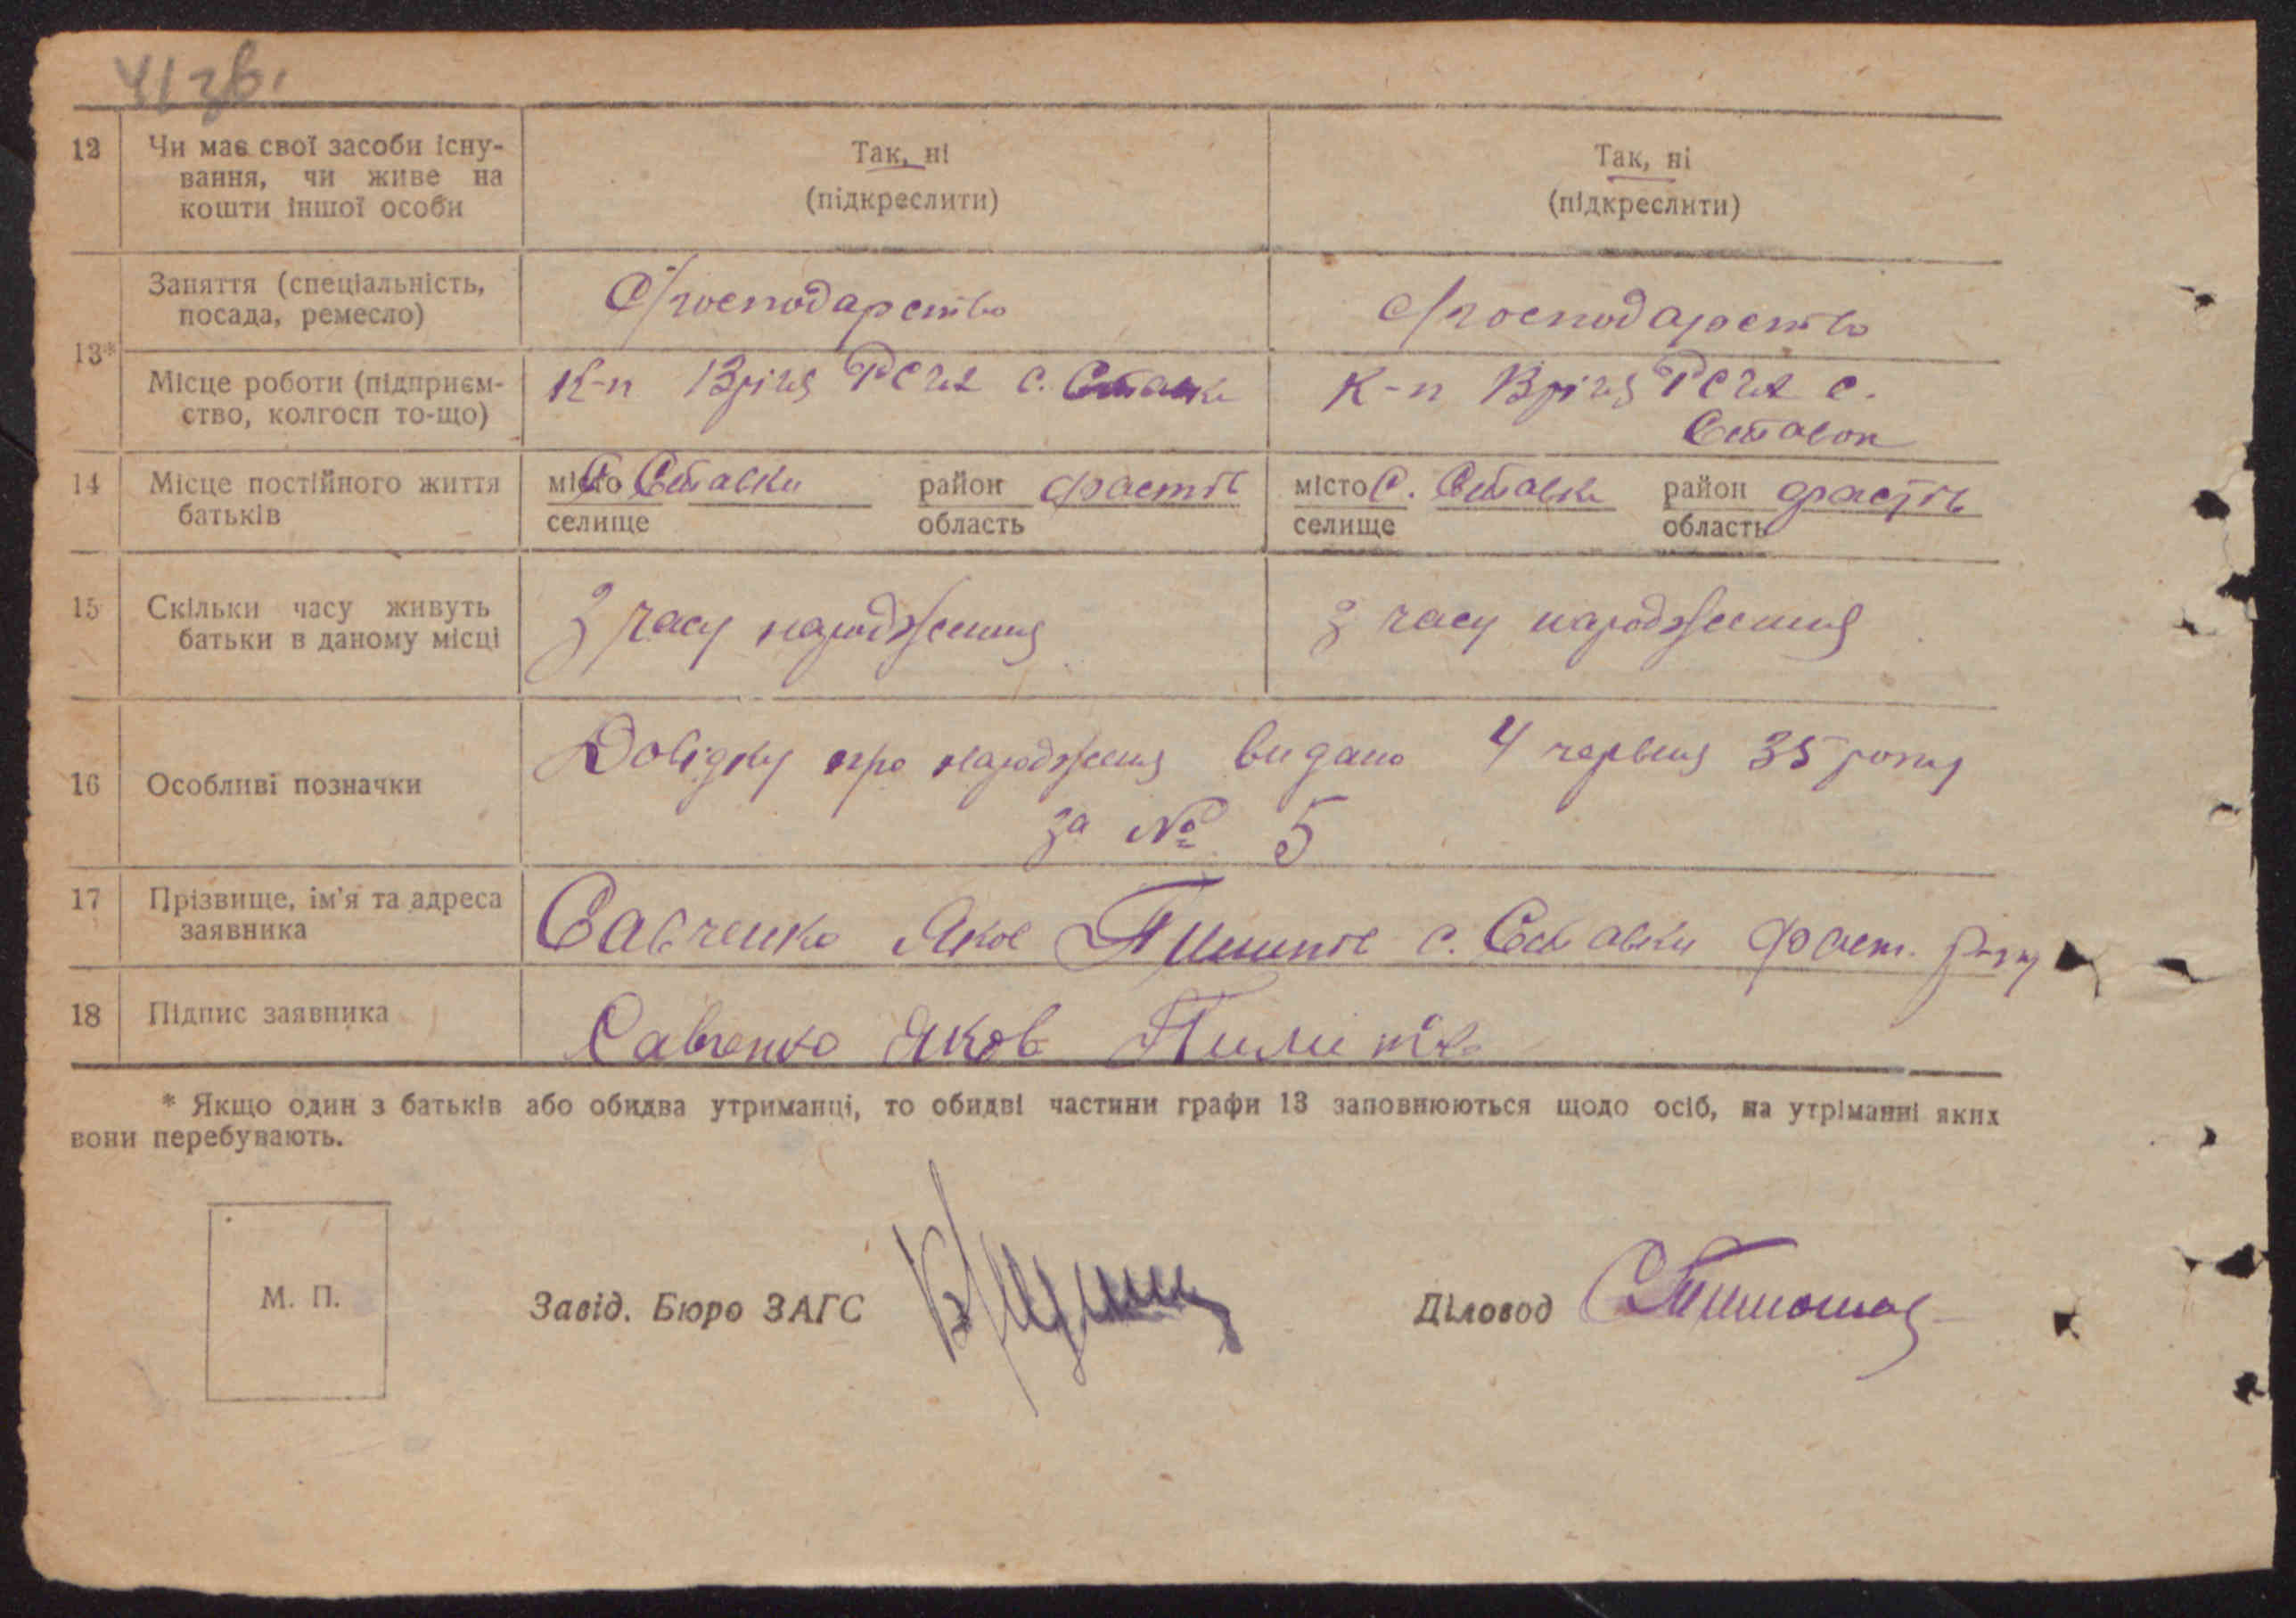 41 зв.
12 Чи має свої засоби існу-
вання, чи живе на
кошти іншої особи
Так, ні
(підкреслити)
Так, ні
(підкреслити)
13*
Заняття (спеціальність,
посада, ремесло)
С/господарство
с/господарство
Місце роботи (підприєм-
ство, колгосп то-що)
К-п с. Ставки
К-п с.
Ставок
14 Місце постійного життя
батьків
місто С Ставки район Фастів
селище область
місто С. Ставки район Фастів
селище область
15 Скільки часу живуть
батьки в даному місці
З часу народження
з часу народження
16 Особливі позначки
Довідку про народження видано 4 червня 35 року
за № 5
17 Прізвище, ім'я та адреса
заявника
Савченко Яков с. Ставки Фаст. р-ну
18 Підпис заявника
Савченко Яков
* Якщо один з батьків або обидва утриманці, то обидві частини графи 13 заповнюються щодо осіб, на утріманні яких
вони перебувають.
М. П.
Завід. Бюро ЗАГС
Діловод